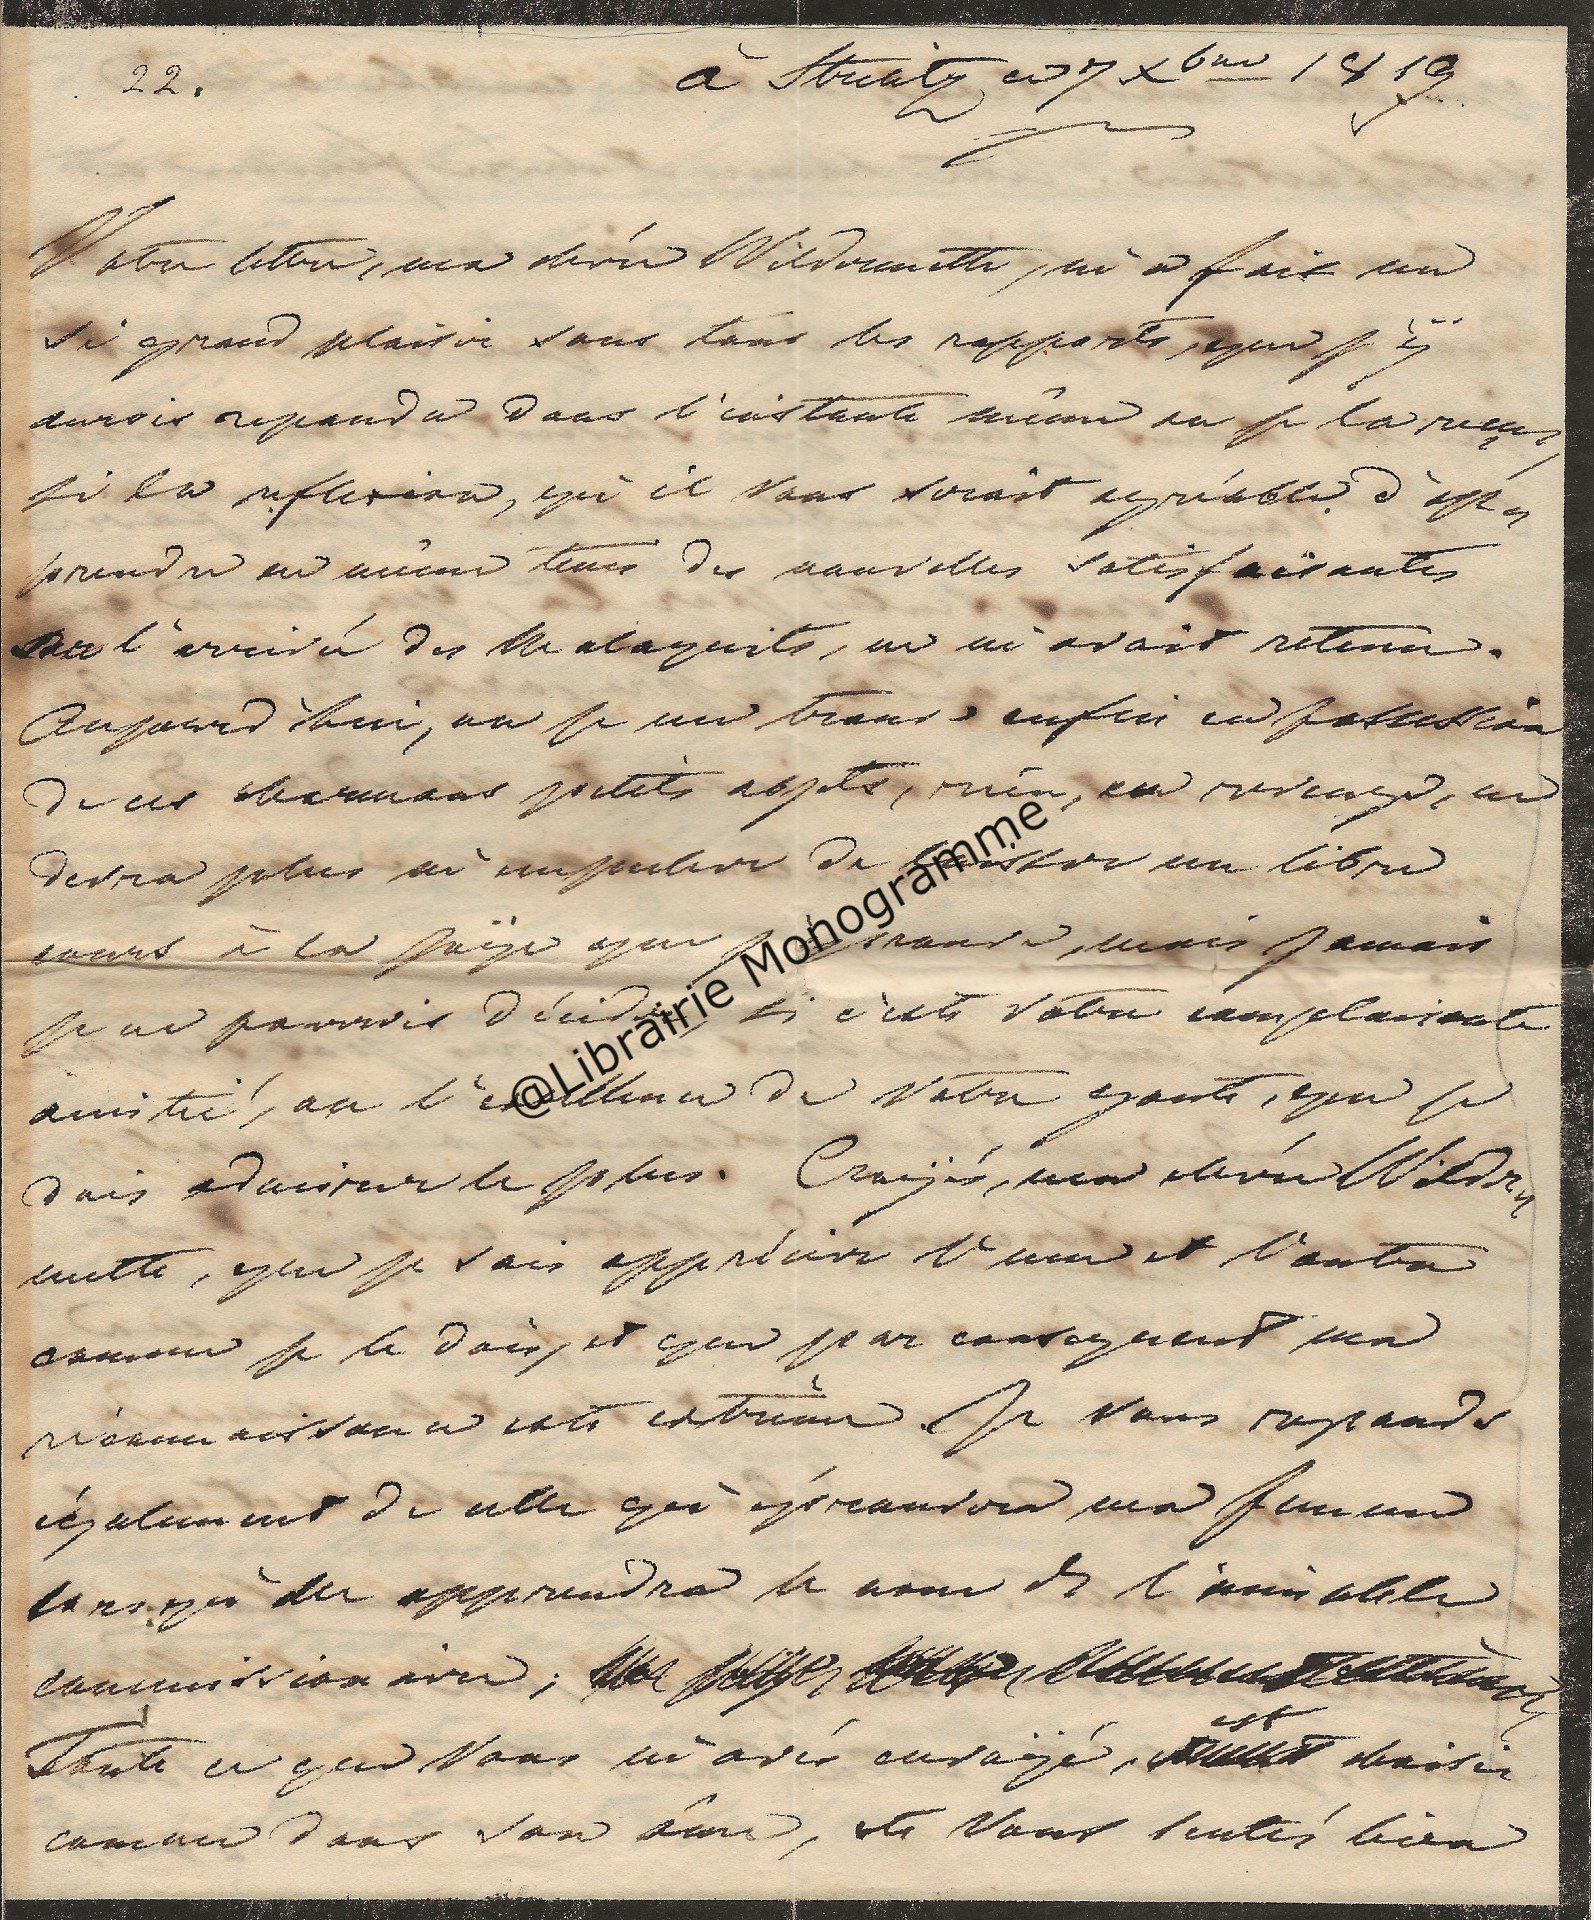 22.
à Strelitz ce 7 Xbre 1819
Votre lettre, ma chére Wildermette, m'a fait un
si grand plaisir sous tous les rapports, que j'ÿ
aurois repondu dans l'instante même ou je la reçus,
si la reflexion, qu'il vous serait agréable d'ap=
prendre en même tems des nouvelles satisfaisantes
sur l'arrivée des Malaquits, ne m'avait retenu.
Aujourd'hui, ou je me trouve enfin en possession
de ces charmans petits objets, rien, en revenge, ne
devra plus m'empecher de laisser un libre
cours à la joÿe que j'éprouve, mais jamais
je ne pourrois décider, si c'este votre complaisante
amitié, ou l'excellence de votre goute, que je
dois admirer le plus. Croÿés, ma chére Wilder=
mette, que je sais apprécier l'une et l'autre
comme je le dois, et que par consequent ma
réconnaissance este extrème. Je vous reponds
également de celle qu'éprouvera ma femme
lorsqu'elle apprendra le nom de l'aimable
commissionaire;
Toute ce que vous m'avés envoÿé, est choisie
comme dans son âme, ete vous sentés bien
@Librairie Monogramme